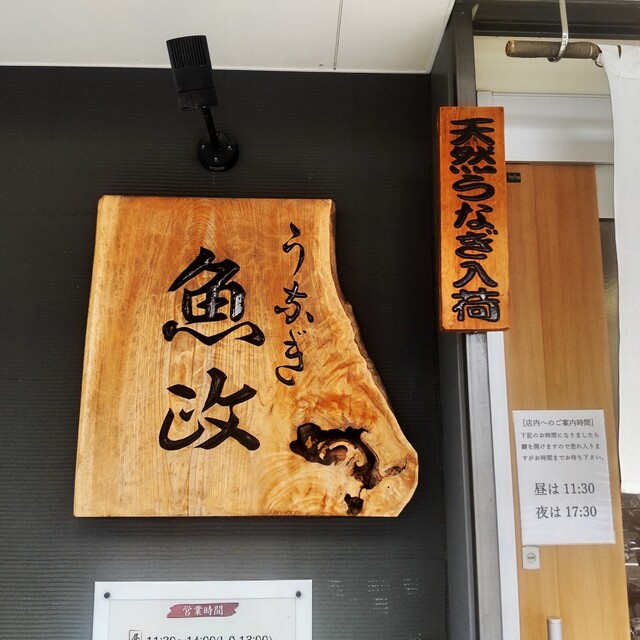 うなぎ
魚政
天然うなぎ入荷
[店内へのご案内時間]
下記のお時間になりましたら
鍵を開けますので恐れ入りま
すがお時間までお待ち下さい。
昼は 11:30
夜は 17:30
営業時間
昼 11:30~14:00(L.O 13:00)